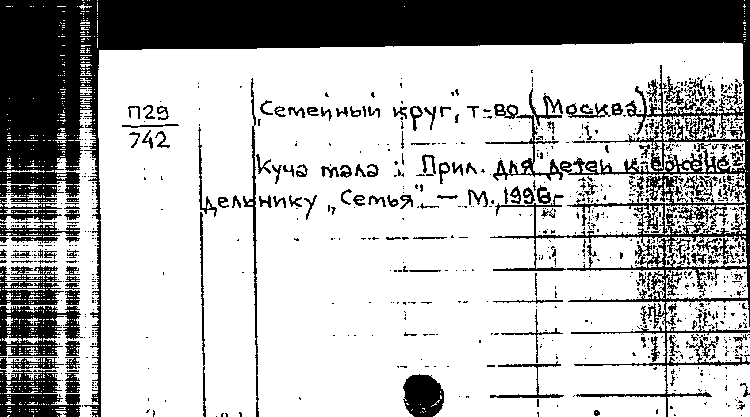 П29
742
„Семейный круг", т-во (Москва)
Куча мала : Прил. для детей к ежене-
дельнику „Семья". — М., 1996-